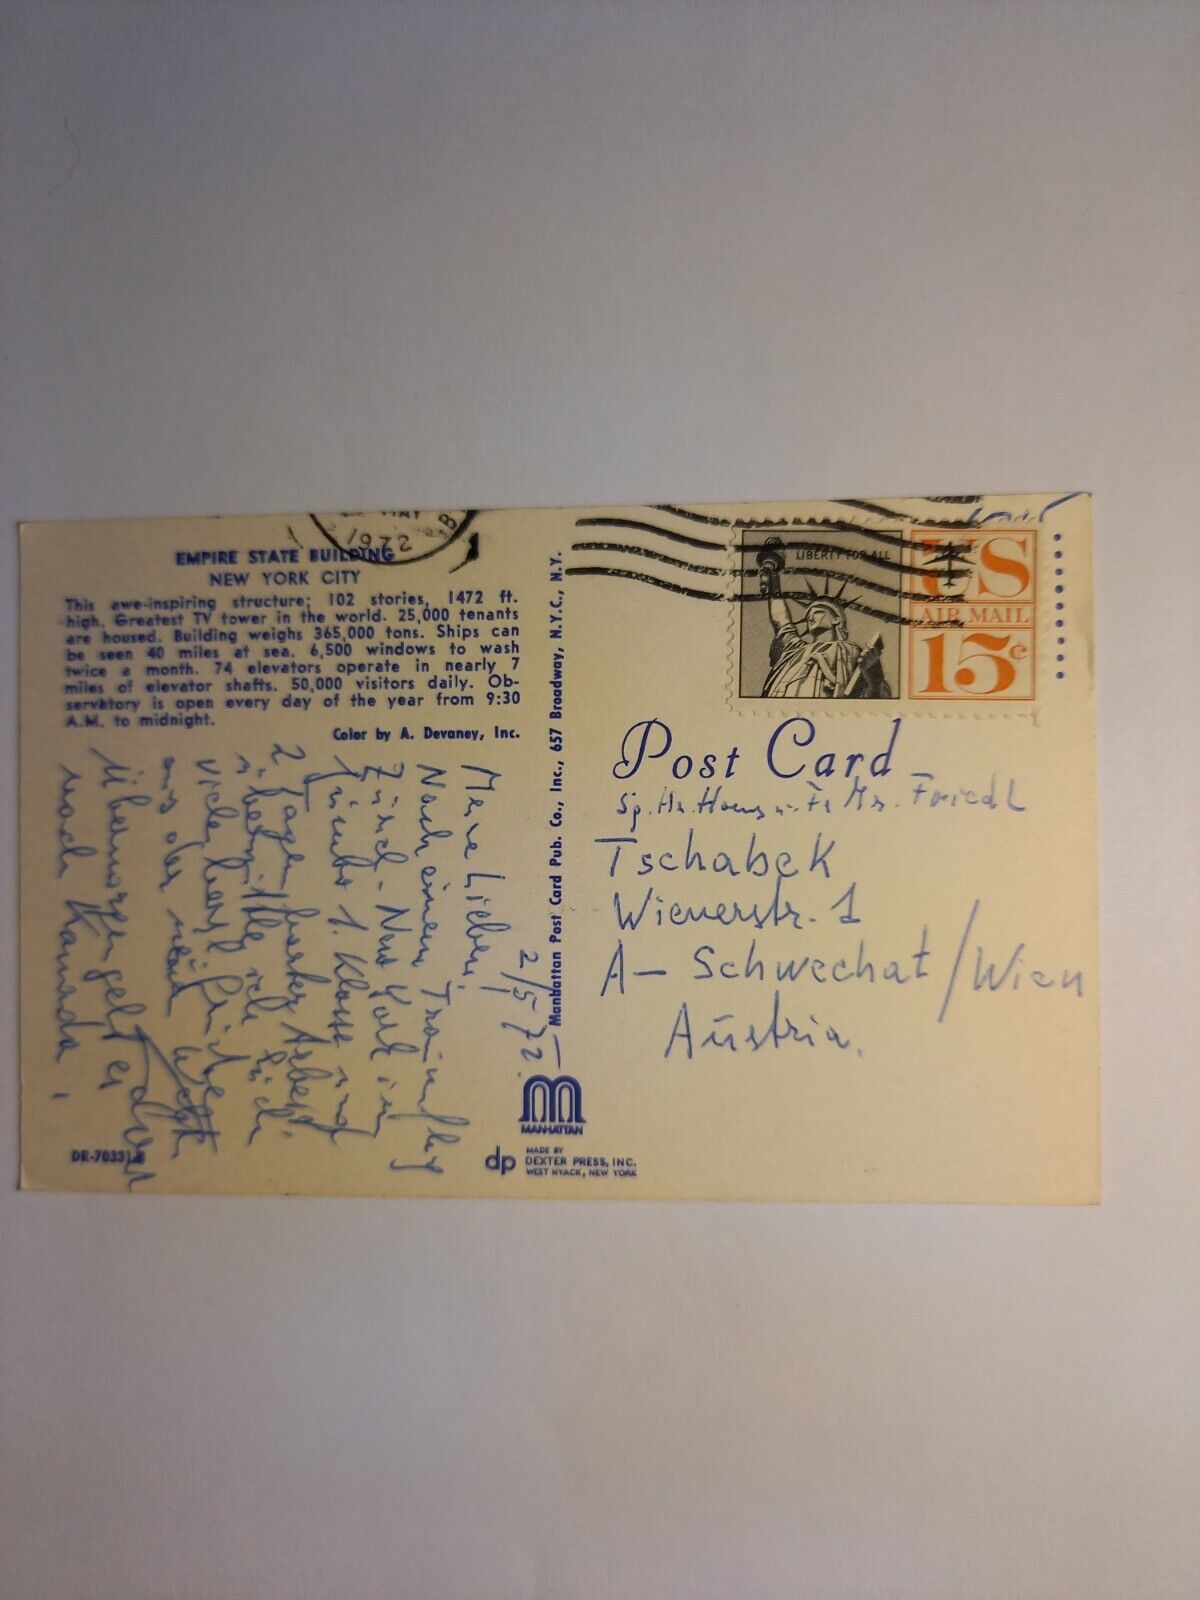 MAY
1972
B
EMPIRE STATE BUILDING
NEW YORK CITY
This awe-inspiring structure; 102 stories, 1472 ft.
high. Greatest TV tower in the world. 25,000 tenants
are housed. Building weighs 365,000 tons. Ships can
be seen 40 miles at sea. 6,500 windows to wash
twice a month. 74 elevators operate in nearly 7
miles of elevator shafts. 50,000 visitors daily. Ob-
servatory is open every day of the year from 9:30
A.M. to midnight.
Color by A. Devaney, Inc.
2/5/72.
Meine Lieben,
Nach einem Traumflug
Zürich - New York im
Jumbo 1. Klasse und
2 Tagen harter Arbeit,
übermittle ich Euch
viele herzl. Grüsse
aus der neuen Welt.
Übermorgen geht es
nach Kanada.
Manhattan Post Card Pub. Co., Inc., 657 Broadway, N.Y.C., N.Y.
LIBERTY FOR ALL
US
AIR MAIL
15¢
Post Card
Sp. Hr. u. Fr. Friedl
Tschabek
Wienerstr. 1
A- Schwechat/Wien
Austria.
MANHATTAN
DR-70331-B
dp
MADE BY
DEXTER PRESS, INC.
WEST NYACK, NEW YORK